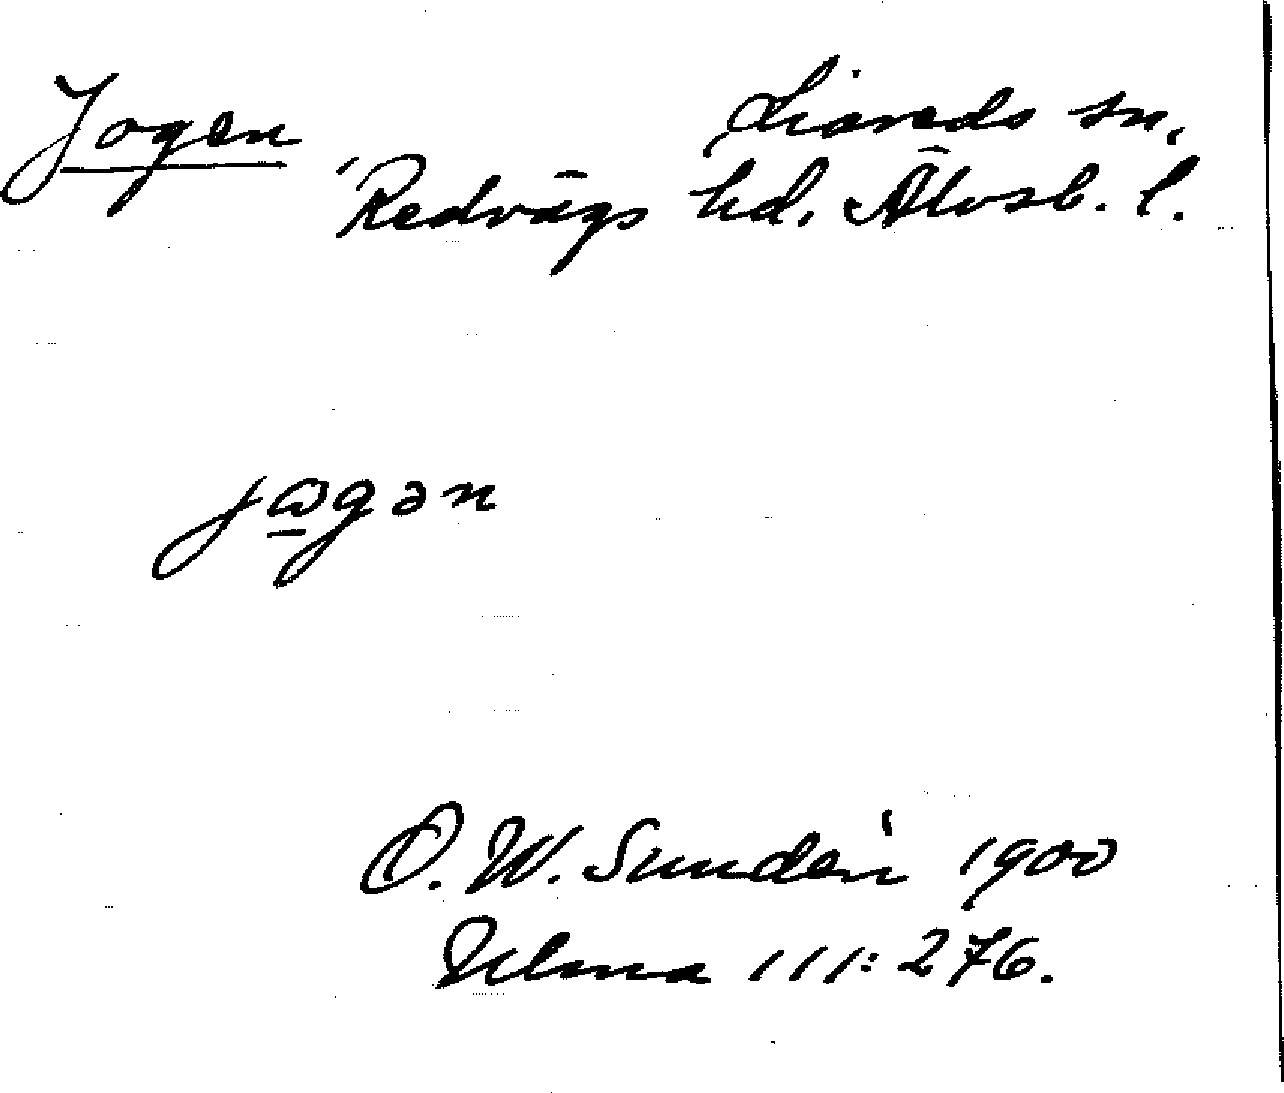 Jogen Liareds sn,
Redvägs hd. Älvsb. l.
jωgən
O. W. Sundén 1900
Ulma 111:276.